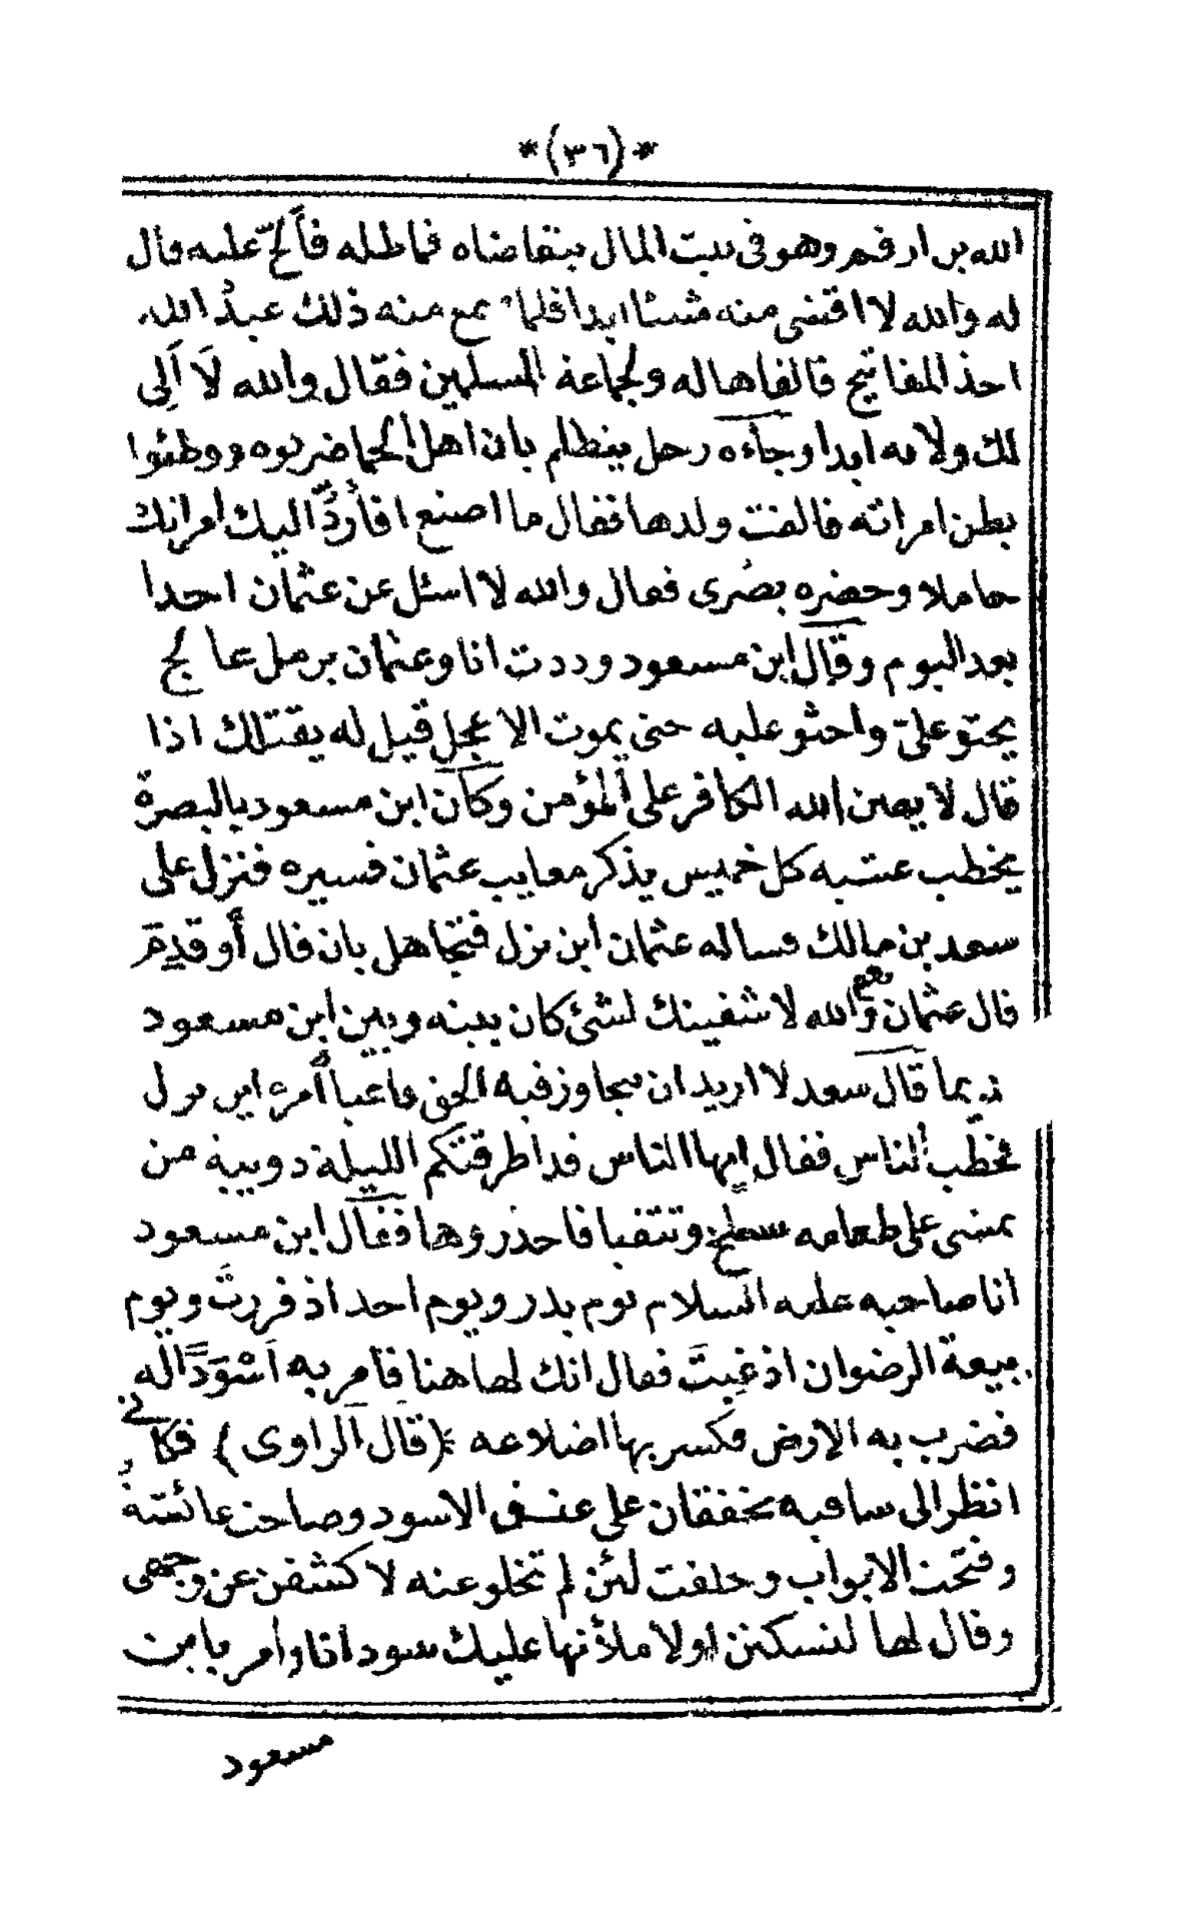 *(٣٦)*
الله بن ارقم وهو فى بيت المال يتقاضاه فماطله فألحّ عليه وقال
له والله لا اقتضى منه شيئا ابدا فلما سمع منه ذلك عبدُ الله
اخذ المفاتيح فالقاها له ولجماعة المسلمين فقال والله لَا اَلِى
لك ولا له ابدا وجآءه رجل يتظلم بان اهل الحما ضربوه ووطئوا
بطن امراته فالقت ولدها فقال ما اصنع افأردُّ اليك امراتك
حاملا وحضره بصُرى فقال والله لا اسئل عن عثمان احدا
بعد اليوم وقال ابن مسعود وددت انا وعثمان برمل عالج
يحثو علىّ واحثو عليه حتى يموت الاعجل قيل له يقتلك اذا
قال لا يعين الله الكافر على المؤمن وكان ابن مسعود بالبصرة
يخطب عتبه كل خميس يذكر معايب عثمان فسيره فنزل على
سعد بن مالك فساله عثمان اين نزل فتجاهل بان قال أَو قدِمَ
قال عثمان نعم والله لاشفينك لشئ كان بينه وبين ابن مسعود
قديما قال سعد لا اريد ان تتجاوز فيه الحق فاعبا أمره اين نزل
فخطب الناس فقال ايها الناس قد اطرقتكم الليلة دويبة من
تمشى على طعامه تسلح وتتقيا فاحذروها فقال ابن مسعود
انا صاحبه عليه السلام يوم بدر ويوم احد اذ فررتَ ويوم
بيعة الرضوان اذ غِبتَ فقال انك لهاهنا فامر به اَسْوَدًا له
فضرب به الارض فكسر بها اضلاعه (قال الراوى) فكانى
انظر الى ساقيه تخفقان على عنق الاسود وصاحت عائشةُ
وفتحت الابواب وحلفت لئن لم تخلو عنه لاكشفن عن وجهى
وقال لها لتسكنن اولا ملأنها عليك سودانا وامر بابن
مسعود